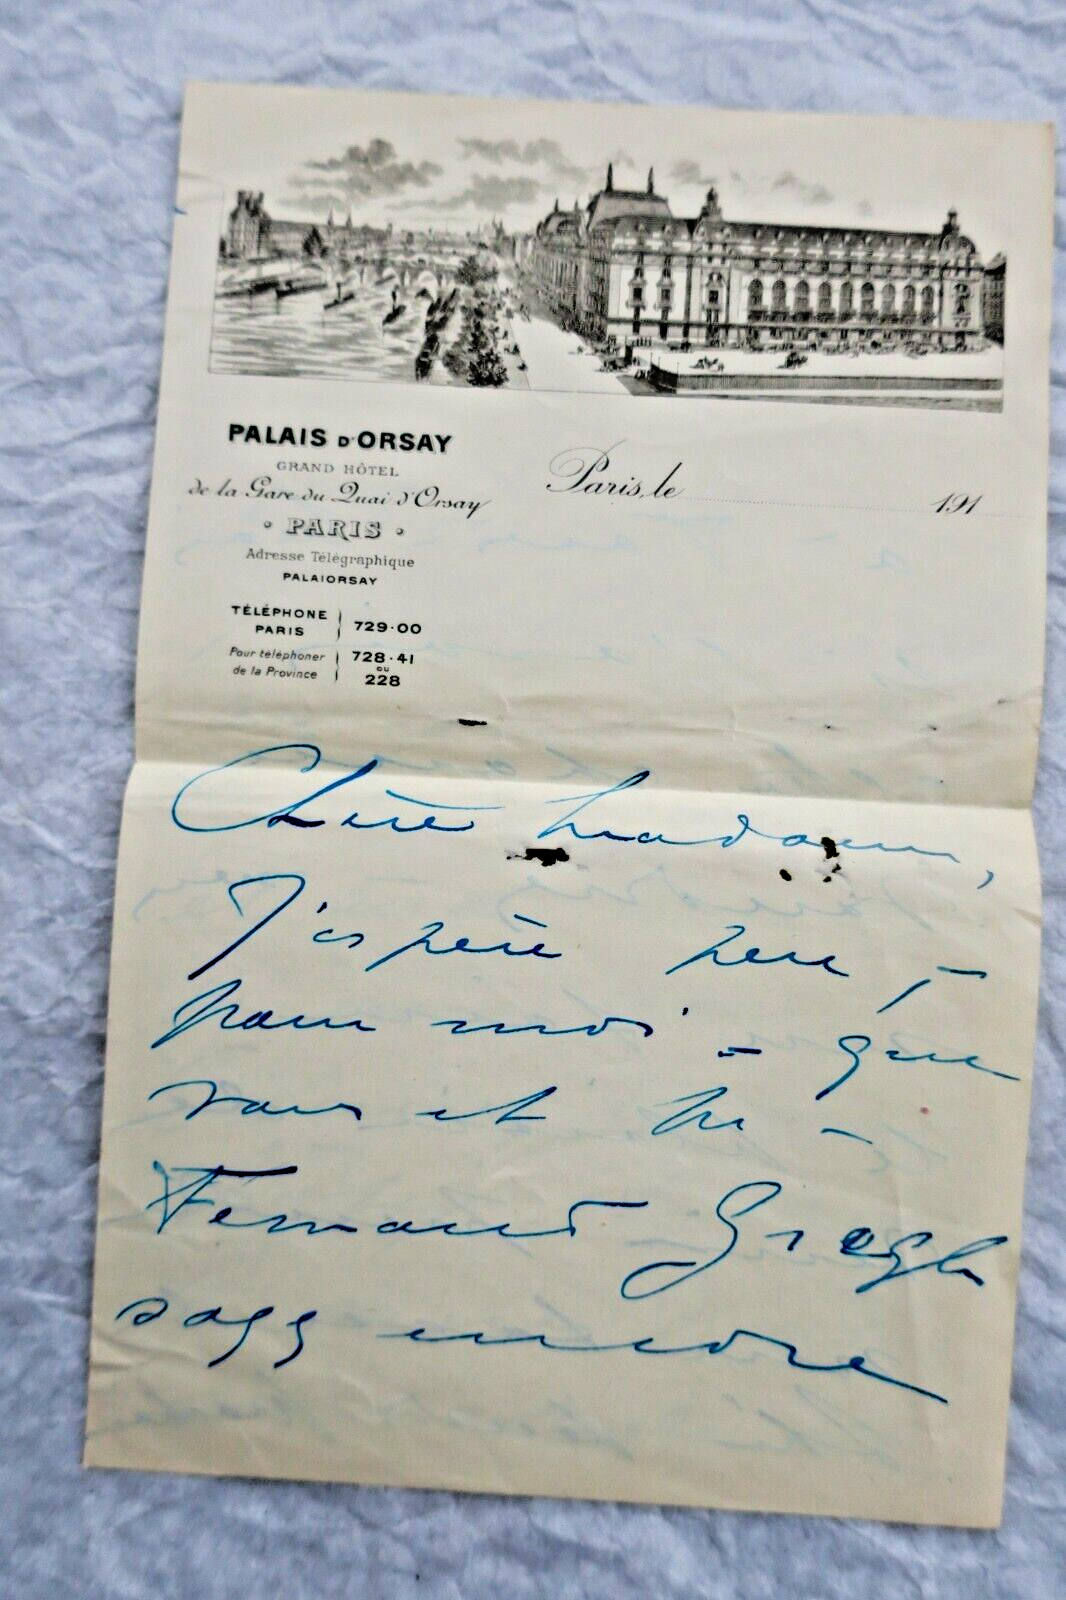 PALAIS D'ORSAY
GRAND HÔTEL
de la Gare du Quai d'Orsay
• PARIS •
Adresse Télégraphique
PALAIORSAY
TÉLÉPHONE PARIS 729·00
Pour téléphoner de la Province 728·41 ou 228
Paris, le 191
Chère Madame,
J'espère peu, –
pour moi – que
vous et Mr –
Fernand Gregh
soyez encore